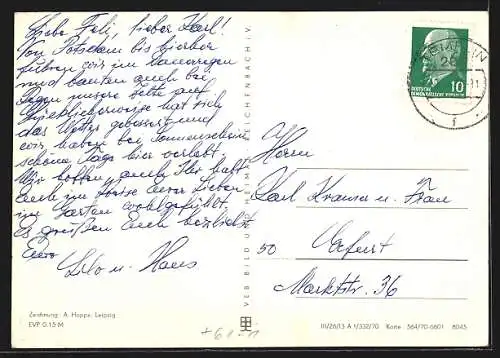 Liebe Feli, lieber Karl!
Von Potsdam bis hierher
fuhren wir im Dauerregen
und bauten auch bei
Regen unsere Zelte auf.
Glücklicherweise hat sich
das Wetter gebessert und
wir haben bei Sonnenschein
schöne Tage hier verlebt.
Wir hoffen, auch Ihr habt
Euch im Kreise Eurer Lieben
im Garten wohlgefühlt.
Es grüßen Euch herzlichst
Eure
Lilo u. Hans
Zeichnung: A. Hoppe, Leipzig
EVP 0.15 M
VEB BILD UND HEIMAT REICHENBACH I. V.
DEUTSCHE
DEMOKRATISCHE REPUBLIK
10
Herrn
Karl Krause u. Frau
50 Erfurt
Marktstr. 36
III/26/13 A 1/332/70 Karte 564/70-6601 8045